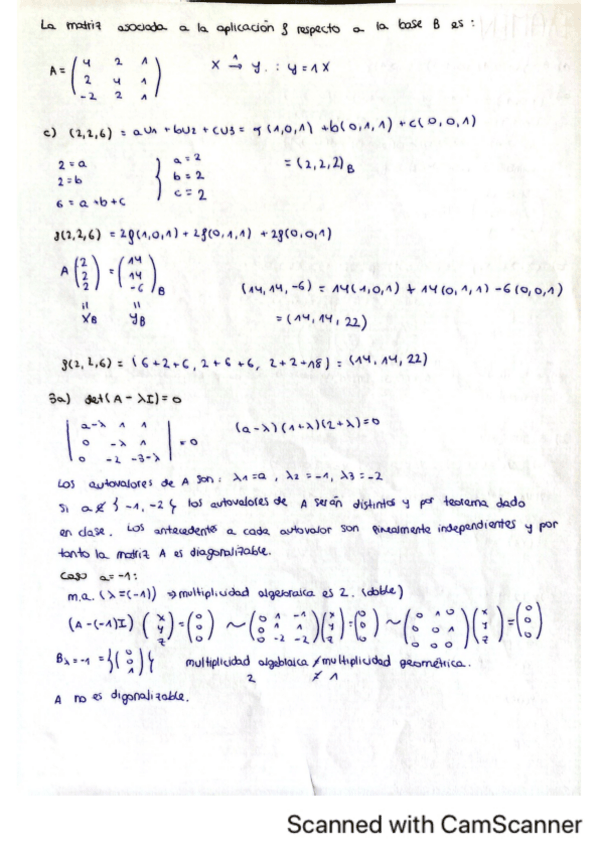 La matriz asociada a la aplicación f respecto a la base B es:
A = ( 4 2 1
2 4 1
-2 2 1 )
X → Y : Y = 1 X
c) (2,2,6) = au1 + bu2 + cu3 = a (1,0,1) + b(0,1,1) + c( 0,0,1)
2 = a
2 = b
6 = a + b + c
a = 2
b = 2
c = 2
= (2,2,2)B
f(2,2,6) = 2f(1,0,1) + 2f(0,1,1) + 2f(0,0,1)
A ( 2 2 2 ) = ( 14 14 -6 )B
XB YB
(14,14,-6) = 14(1,0,1) + 14(0,1,1) - 6(0,0,1)
= (14,14,22)
f(2,2,6) = (6+2+6, 2+6+6, 2+2+18) = (14,14,22)
3a) det(A - λI) = 0
| a-λ 1 1
0 -λ 1
0 -2 -3-λ | = 0
(a-λ)(1+λ)(2+λ)=0
Los autovalores de A son: λ1 = a, λ2 = -1, λ3 = -2
Si a ∉ {-1,-2} los autovalores de A serán distintos y por teorema dado
en clase. Los antecedentes a cada autovalor son linealmente independientes y por
tanto la matriz A es diagonalizable.
Caso a = -1:
m.a. (λ=(-1)) → multiplicidad algebraica es 2. (doble)
(A-(-1)I) (x y z) = (0 0 0) ~ (0 1 -1 0 1 1 0 -2 -2) (x y z) = (0 0 0) ~ (0 1 0 0 0 1 0 0 0) (x y z) = (0 0 0)
Bλ=-1 = {(0 0 1)} multiplicidad algeblaica ≠ multiplicidad geométrica.
2 ≠ 1
A no es digonalizable.
Scanned with CamScanner